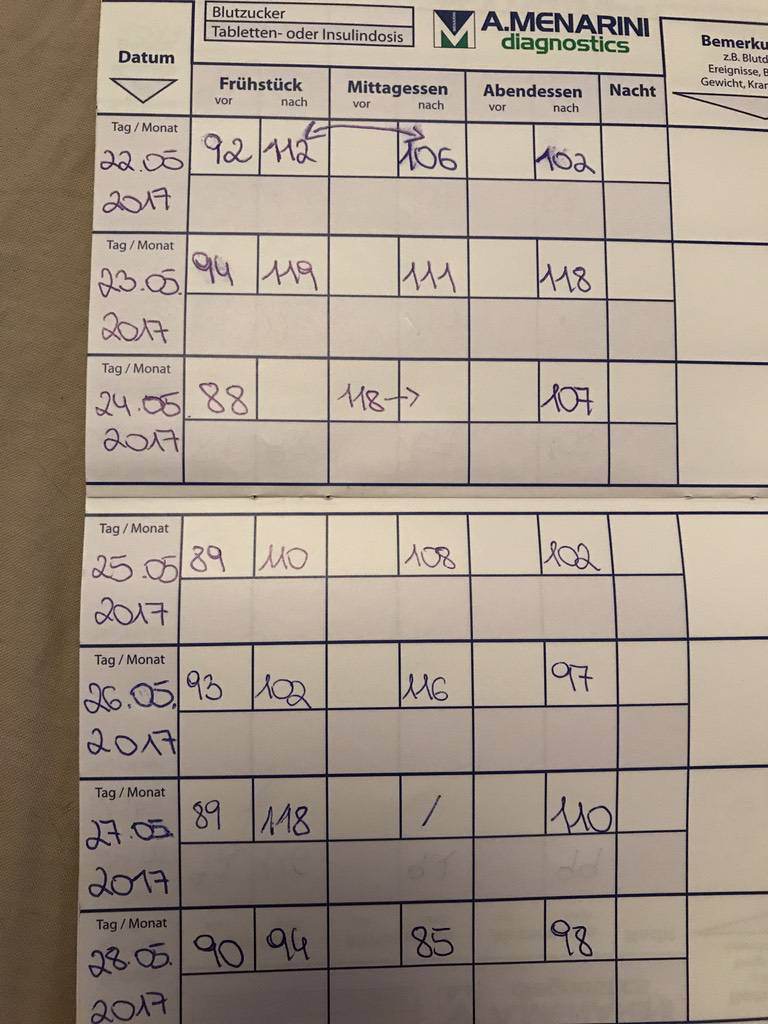 Blutzucker
Tabletten- oder Insulindosis
A.MENARINI
diagnostics
Datum
Bemerku
z.B. Blutd
Ereignisse, B
Gewicht, Kran
Frühstück Mittagessen Abendessen Nacht
vor nach vor nach vor nach
Tag / Monat
22.05 92 112 106 102
2017
Tag / Monat
23.05. 94 119 111 118
2017
Tag / Monat
24.05. 88 118→ 107
2017
Tag / Monat
25.05 89 110 108 102
2017
Tag / Monat
26.05. 93 102 116 97
2017
Tag / Monat
27.05. 89 118 / 110
2017
Tag / Monat
28.05. 90 94 85 98
2017